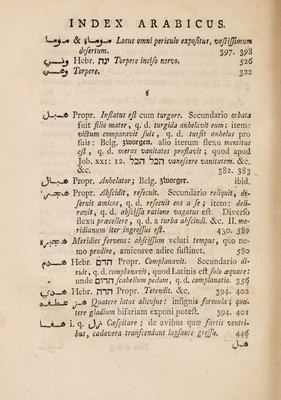 INDEX ARABICUS.
موماة & موما Locus omni periculo expositus, vastissimum
desertum. 397. 398
ونـي Hebr. ינה Torpere inciso nervo. 526
وهـي Torpere. 322
ه
هـبـل Propr. Inflatus est cum turgore. Secundario orbata
fuit filio mater, q. d. turgida anhelavit eum: item:
victum comparavit suis, q. d. tursit anhelus pro
suis: Belg. zworgen. alio iterum flexu mentitus
est, q. d. meras vanitates proflavit; quod apud
Job. XXI: 12. הבל הבל vanescere vanitatem. &c.
&c. 382. 383
هـبـال Propr. Anhelator; Belg. ibid.
هـجـر Propr. Abscidit, resecuit. Secundario reliquit, de-
seruit amicos, q. d. resecuit eos a se; item: deli-
ravit, q. d. abscissa ratione vagatus est. Diverso
flexu præcellere, q. d. a turba abscindi. &c. II. me-
ridianum iter ingressus est. 430. 589
هـجـيـرة Meridies fervens: abscissum veluti tempus, quo ne-
mo prodire, amicosve adire sustinet. 580
هـدم Hebr. הדם Propr. Complanavit. Secundario di-
ruit, q. d. complanavit, quod Latinis est solo æquare:
unde הדום scabellum pedum, q. d. complanatio. 356
هـدي Hebr. הדה Propr. Tetendit. &c. 394. 402
هـز عطفه Quatere latus alicujus: insignis formula; qua-
tere gladium bifariam enixi potest. 394. 401
هـفـا i. q. زل Cæspitare; de avibus quæ fartis ventri-
bus, cadavera transcendunt lapsante gressu. 446
هـل